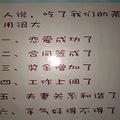 人说，吃了我们的茶
用很大
一、恋爱成功了
二、合同签成了
三、奖金增加了
四、工作上调了
五、夫妻关系和谐了
六、手气好得不得了